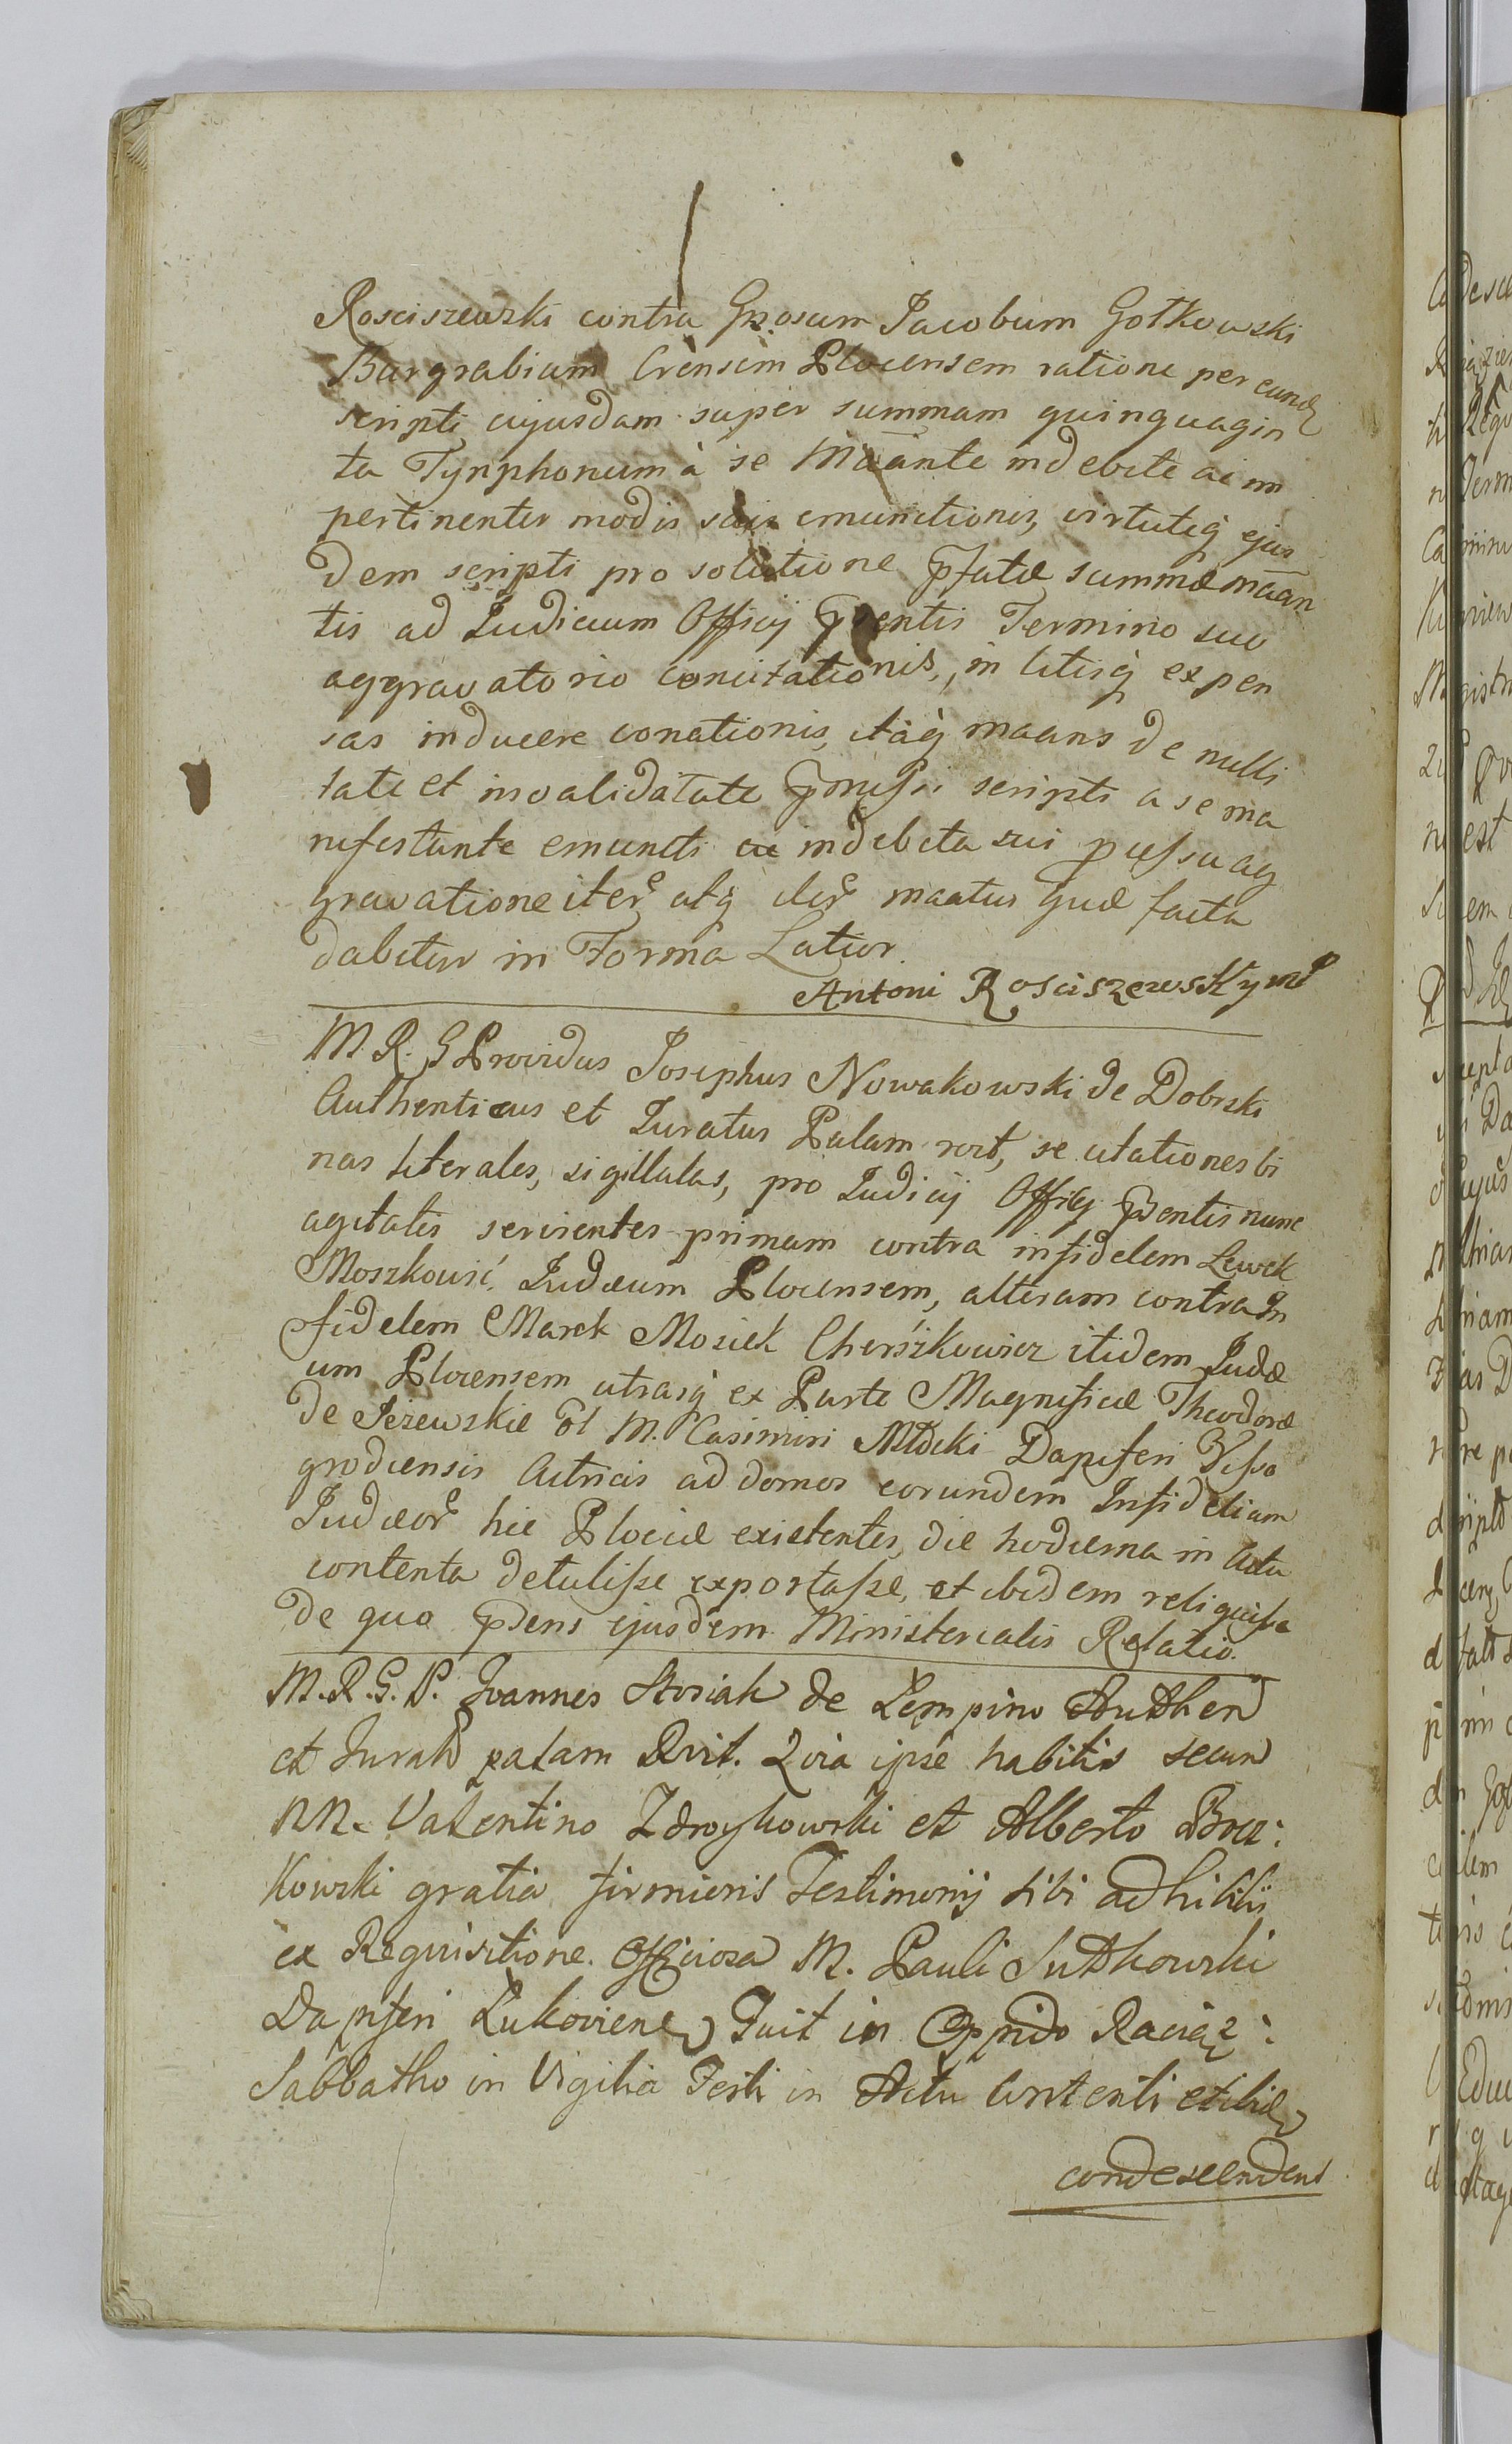 Rosciszewski contra Gnosum Jacobum Gotkowski
Burgrabium Crensem Plocensem ratione per eund
scripti cujusdam super summam quinquagin
ta Tynphonum à se Māante indebite ac im
pertinenter modis suis emunctionis, virtuteq ejus
dem scripti pro solutione pfatæ summæ māan
tis ad Judicium Officij pntis Termino suo
aggravatorio concitationis, in litisq expen
sas inducere conationis, itaq maans de nulli
tate et invalidatate pmissi scripti a se ma
nifestante emuncti ac indebita sui pcessu ag
gravatione iter atq iter maatur quæ facta
dabitur in Forma Latior.
Antoni Rosciszewski mp
M. R. G Providus Josephus Nowakowski de Dobrski
Authenticus et Juratus Palam rcvt, se citationes bi
nas literales, sigillatas, pro Judicij Officij pntis nunc
agitatis servientes primam contra infidelem Lewek
Moszkowić Judæum Plocensem, alteram contra In
fidelem Marek Mosiek Cherszkowicz itidem Judæ
um Plocensem utrasq ex Parte Magnificæ Theodoræ
de Jezewskie Ol M. Casimiri Młocki Dapiferi Visso
grodiensis Actricis ad domos eorundem Infidelium
Judæor hic Plociæ existentes, die hodierna in Actu
contenta detulisse exportasse, et ibidem reliquisse
de quo psens ejusdem Ministerialis Relatio.
M. R. G. P. Joannes Stosiak de Lempino Authen
et Jurat palam Rvit. Quia ipse habitis secum
NN. Valentino Zdroykowski et Alberto Bro
kowski gratia firmioris Testimonij sibi adhibitis
ex Requisitione Officiosa M. Pauli Sutkowski
Dapiferi Lukovien Fuit in Oppido Raciąz:
Sabbatho in Vigilia Festi in Actu Contenti et ibid
condescendens